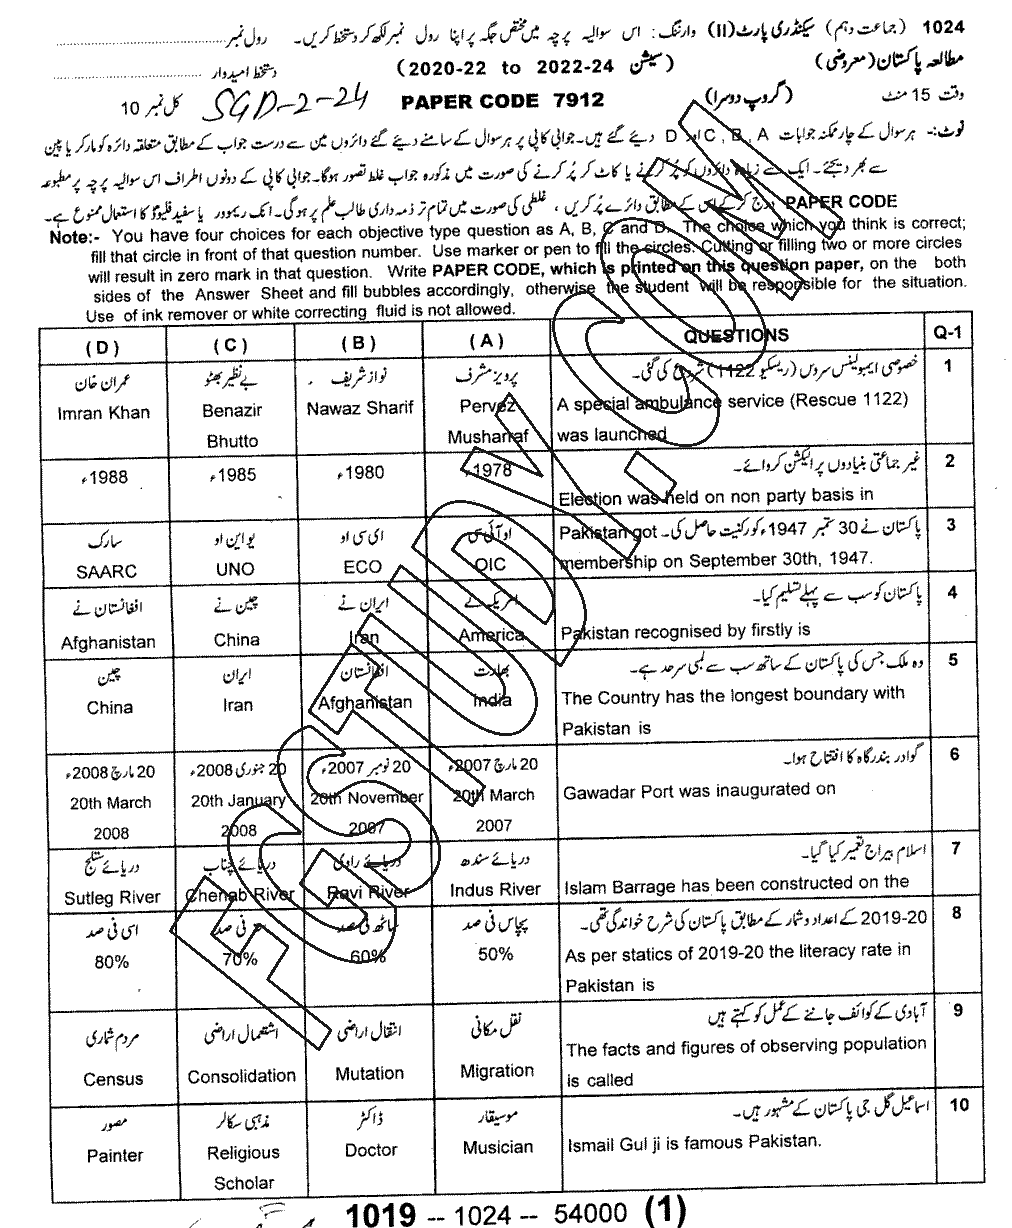 1024 (جماعت دہم) سیکنڈری پارٹ (II) وارننگ: اس سوالیہ پرچہ میں مختص جگہ پر اپنا رول نمبر لکھ کر دستخط کریں۔ رول نمبر
مطالعہ پاکستان (معروضی) (سیشن 2020-22 to 2022-24) دستخط امیدوار
وقت 15 منٹ (گروپ دوسرا) PAPER CODE 7912 SGD-2-24 کل نمبر 10
نوٹ:- ہر سوال کے چار ممکنہ جوابات A ، B ، C اور D دیئے گئے ہیں۔ جوابی کاپی پر ہر سوال کے سامنے دیئے گئے دائروں میں سے درست جواب کے مطابق متعلقہ دائرہ کو مارکر یا پین
سے بھر دیجئے۔ ایک سے زیادہ دائروں کو پُر کرنے یا کاٹ کر پُر کرنے کی صورت میں مذکورہ جواب غلط تصور ہوگا۔ جوابی کاپی کے دونوں اطراف اس سوالیہ پرچہ پر مطبوعہ
PAPER CODE درج کر کے اس کے مطابق دائرے پُر کریں، غلطی کی صورت میں تمام تر ذمہ داری طالب علم پر ہوگی۔ انک ریموور یا سفید فلیوڈ کا استعمال ممنوع ہے۔
Note:- You have four choices for each objective type question as A, B, C and D. The choice which you think is correct;
fill that circle in front of that question number. Use marker or pen to fill the circles. Cutting or filling two or more circles
will result in zero mark in that question. Write PAPER CODE, which is printed on this question paper, on the both
sides of the Answer Sheet and fill bubbles accordingly, otherwise the student will be responsible for the situation.
Use of ink remover or white correcting fluid is not allowed.
(D) (C) (B) (A) QUESTIONS Q-1
عمران خان بے نظیر بھٹو نواز شریف پرویز مشرف خصوصی ایمبولینس سروس (ریسکیو 1122) شروع کی گئی۔ 1
Imran Khan Benazir Nawaz Sharif Pervez A special ambulance service (Rescue 1122)
Bhutto Musharraf was launched
1988ء 1985ء 1980ء 1978ء غیر جماعتی بنیادوں پر الیکشن کروائے۔ 2
Election was held on non party basis in
سارک یو این او ای سی او او آئی سی پاکستان نے 30 ستمبر 1947ء کو رکنیت حاصل کی۔ Pakistan got 3
SAARC UNO ECO OIC membership on September 30th, 1947.
افغانستان نے چین نے ایران نے امریکہ نے پاکستان کو سب سے پہلے تسلیم کیا۔ 4
Afghanistan China Iran America Pakistan recognised by firstly is
چین ایران افغانستان بھارت وہ ملک جس کی پاکستان کے ساتھ سب سے لمبی سرحد ہے۔ 5
China Iran Afghanistan India The Country has the longest boundary with
Pakistan is
20 مارچ 2008ء 20 جنوری 2008ء 20 نومبر 2007ء 20 مارچ 2007ء گوادر بندرگاہ کا افتتاح ہوا۔ 6
20th March 20th January 20th November 20th March Gawadar Port was inaugurated on
2008 2008 2007 2007
دریائے ستلج دریائے چناب دریائے راوی دریائے سندھ اسلام بیراج تعمیر کیا گیا۔ 7
Sutleg River Chenab River Ravi River Indus River Islam Barrage has been constructed on the
اسی فی صد فی صد ساٹھ فی صد پچاس فی صد 2019-20 کے اعداد و شمار کے مطابق پاکستان کی شرح خواندگی تھی۔ 8
80% 70% 60% 50% As per statics of 2019-20 the literacy rate in
Pakistan is
مردم شماری اشتمال اراضی انتقال اراضی نقل مکانی آبادی کے کوائف جاننے کے عمل کو کہتے ہیں 9
Census Consolidation Mutation Migration The facts and figures of observing population
is called
مصور مذہبی سکالر ڈاکٹر موسیقار اسماعیل گل جی پاکستان کے مشہور ہیں۔ 10
Painter Religious Doctor Musician Ismail Gul ji is famous Pakistan.
Scholar
1019 -- 1024 -- 54000 (1)
FGSTUDY.COM